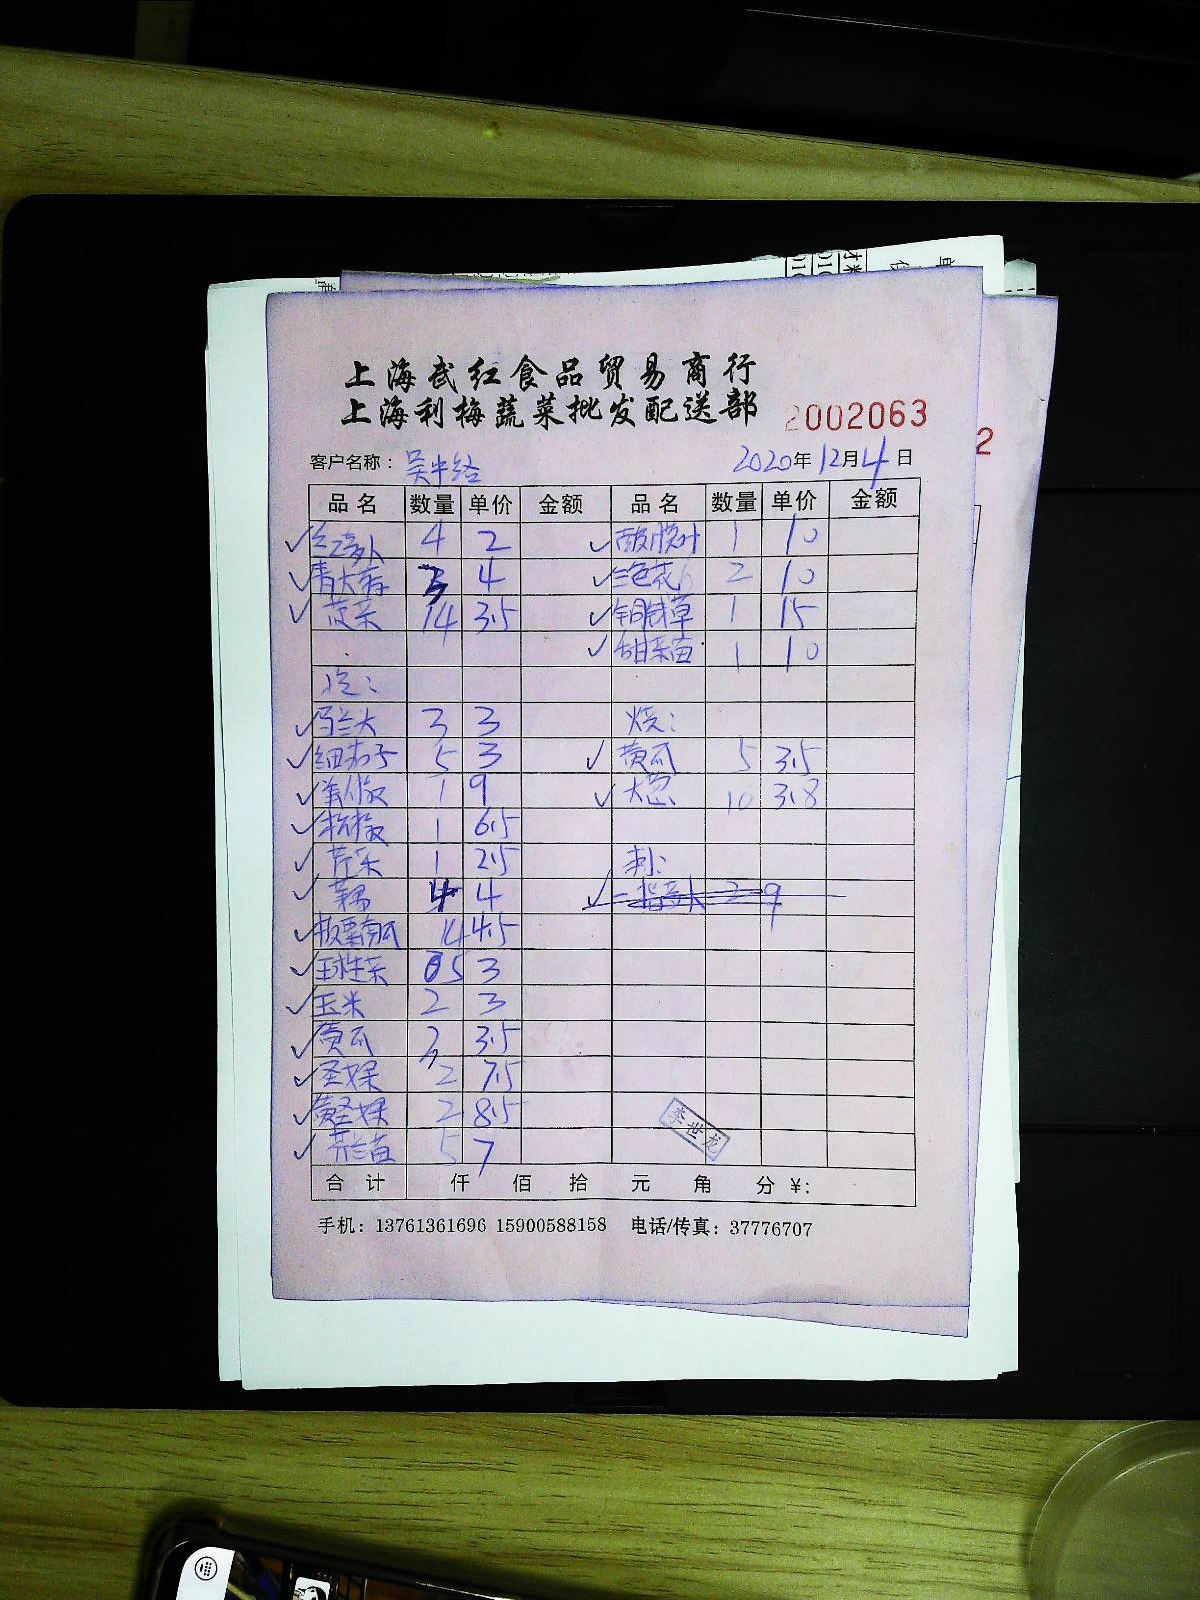 上海武红食品贸易商行
上海利梅蔬菜批发配送部
2002063
2
客户名称：吴中路 2020年12月4日
品名 数量 单价 金额 品名 数量 单价 金额
4 2 酸模叶 1 10
青大蒜 3 4 三色花 2 10
菠菜 14 3.5 铜钱草 1 15
甜菜苗 1 10
冷：
马兰头 3 3 烧：
细茄子 5 3 黄瓜 5 3.5
1 9 大葱 10 3.8
杭椒 1 6.5
芹菜 1 2.5 刺：
4 4 2 9
板栗南瓜 14 4.5
球生菜 5 3
玉米 2 3
黄瓜 3.5
圣女果 2 7.5
黄圣女果 2 8.5
芥兰苗 5 7
李世龙
合计 仟 佰 拾 元 角 分 ¥：
手机：13761361696 15900588158 电话/传真：37776707